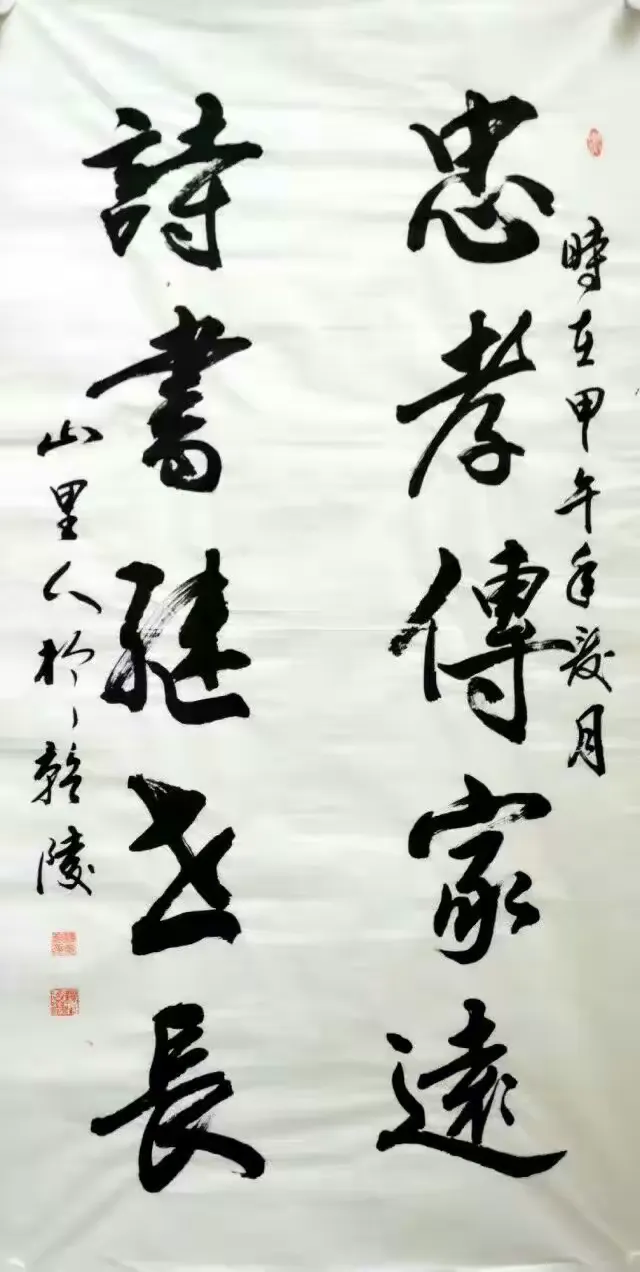 忠孝傳家遠
時在甲午年夏月
詩書继世長
山里人於乾陵